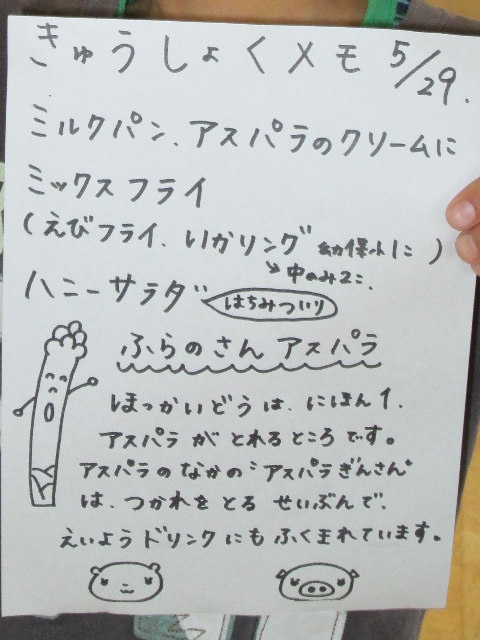 きゅうしょくメモ 5/29.
ミルクパン、アスパラのクリームに
ミックスフライ
(えびフライ、いかリング 幼保小1こ)
→中のみ2こ.
ハニーサラダ はちみついり
ふらのさん アスパラ
ほっかいどうは、にほん1.
アスパラがとれるところです。
アスパラのなかの"アスパラぎんさん"
は、つかれをとる せいぶんで、
えいようドリンクにもふくまれています。